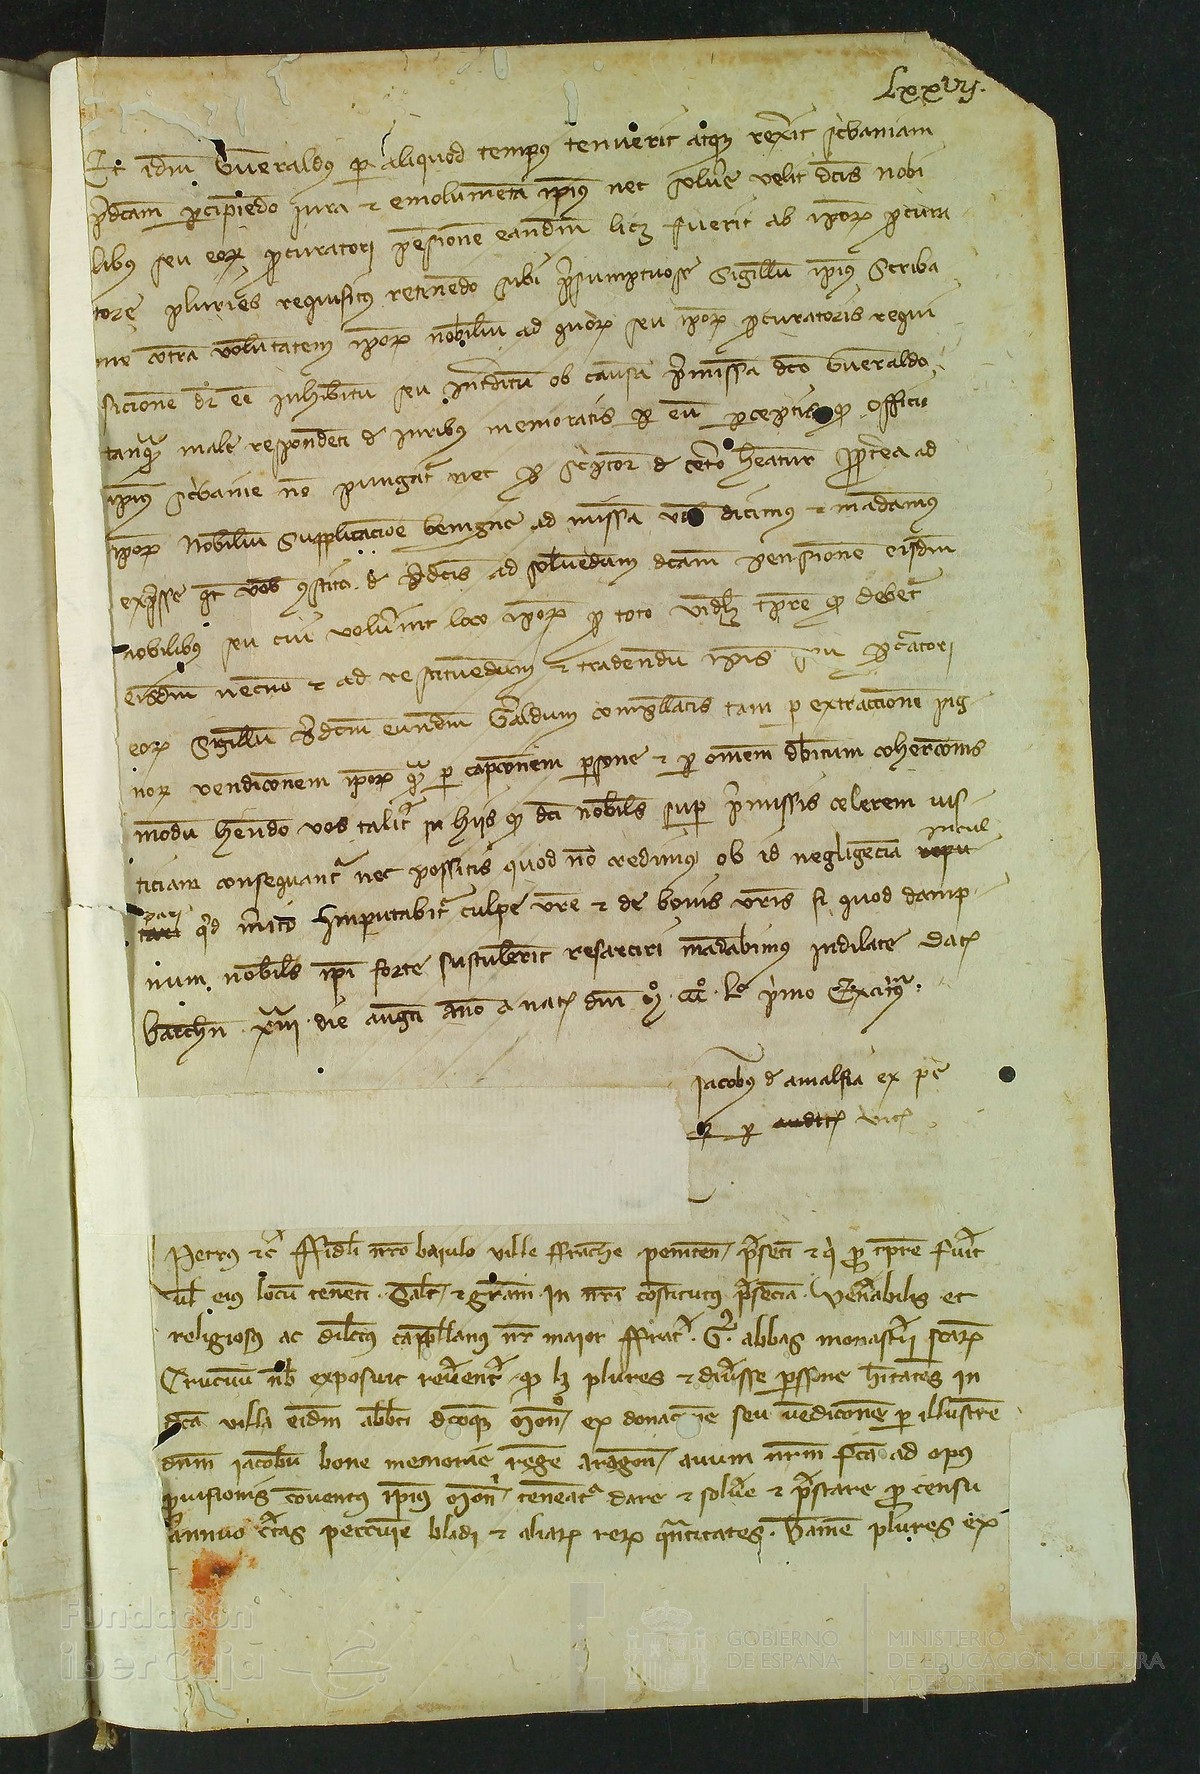 Lxxvj.
Et idem Gueraldus per aliquod tempus tenuerit atque rexerit scribaniam
predictam percipiendo jura et emolumenta ipsius nec solvere velit dictis nobi
libus seu eorum procuratori pensionem eandem licet fuerit ab ipsorum procura
tore pluries requisitus retinendo sibi presumptuose Sigillum ipsius Scriba
nie contra voluntatem ipsorum nobilium ad quorum seu ipsorum procuratoris requi
sicionem dicitur esse inhibitum seu interdictum ob causam premissam dicto Gueraldo
tanquam male respondenti de iuribus memoratis per eum perceptis quod officio
ipsius scribanie non pungatur nec pro scriptore de cetero heatur propterea ad
ipsorum Nobilium Supplicacionem benigne admissam vobis dicimus et mandamus
expresse quod vos constito de predictis ad solvendum dictam pensionem eisdem
nobilibus seu cui voluerint loco ipsorum pro toto videlicet tempore quo debetur
eisdem necnon et ad restituendum et tradendum ipsis seu procuratori
eorum Sigillum predictum eundem Geraldum compellatis tam per extraccionem pig-
norum vendicionem ipsorum quam per capcionem persone et per omnem debitum cohercionis
modum hendo vos taliter in hiis quod dicti nobiles super premissis celerem jus-
ticiam consequantur nec possitis quod non credimus ob id negligencia repu incul
tari pari quod merito Imputabitur culpe vestre et de bonis vestris si quod damp-
num nobiles ipsi forte sustulerint resarciri mandabimus indilate Datum
barchinone xiii die augusti anno a nat dni Mº CCCº Lº primo Exa
Iacobus de amalfia ex parte
per audit vic
Petrus etc ffideli nostro baiulo ville ffranche peniten presenti et qui pro tempore fuerit
vel eius locum tenenti Salutem et graciam In nostri constitutus presencia venerabilis et
religiosus ac dilectus capellanus noster maior ffrater G abbas monasterii sanctarum
Crucum nobis exposuit reverenter quod licet plures et diverse persone habitantes in
dicta villa eidem abbati dictoque Mon ex donacione seu vendicione per illustrem
dominum iacobum bone memorie regem aragon avum nostrum facta ad opus
provisionis conventus ipsius Mon teneatur dare et solvere et prestare pro censu
annuo certas peccunie bladi et aliarum rerum quantitates Tamen plures ex
Fundación
iberCaja
GOBIERNO
DE ESPAÑA
MINISTERIO
DE EDUCACIÓN, CULTURA
Y DEPORTE